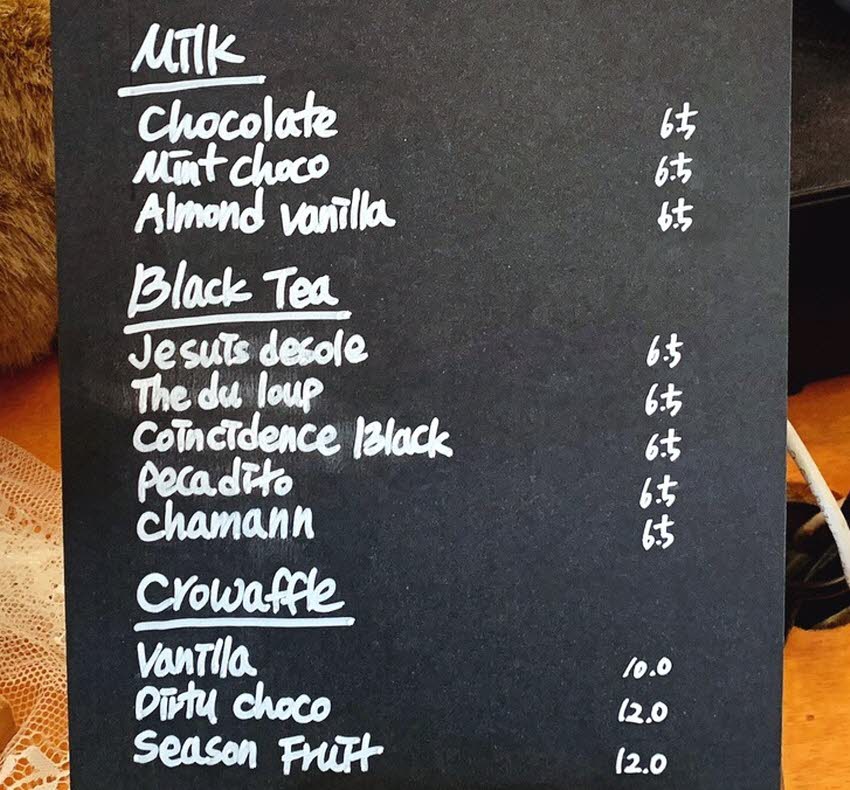 Milk
Chocolate 6.5
Mint choco 6.5
Almond vanilla 6.5
Black Tea
Je suis desole 6.5
The du loup 6.5
Coincidence Black 6.5
Pecadito 6.5
Chamann 6.5
Crowaffle
Vanilla 10.0
Dirty choco 12.0
Season Fruit 12.0